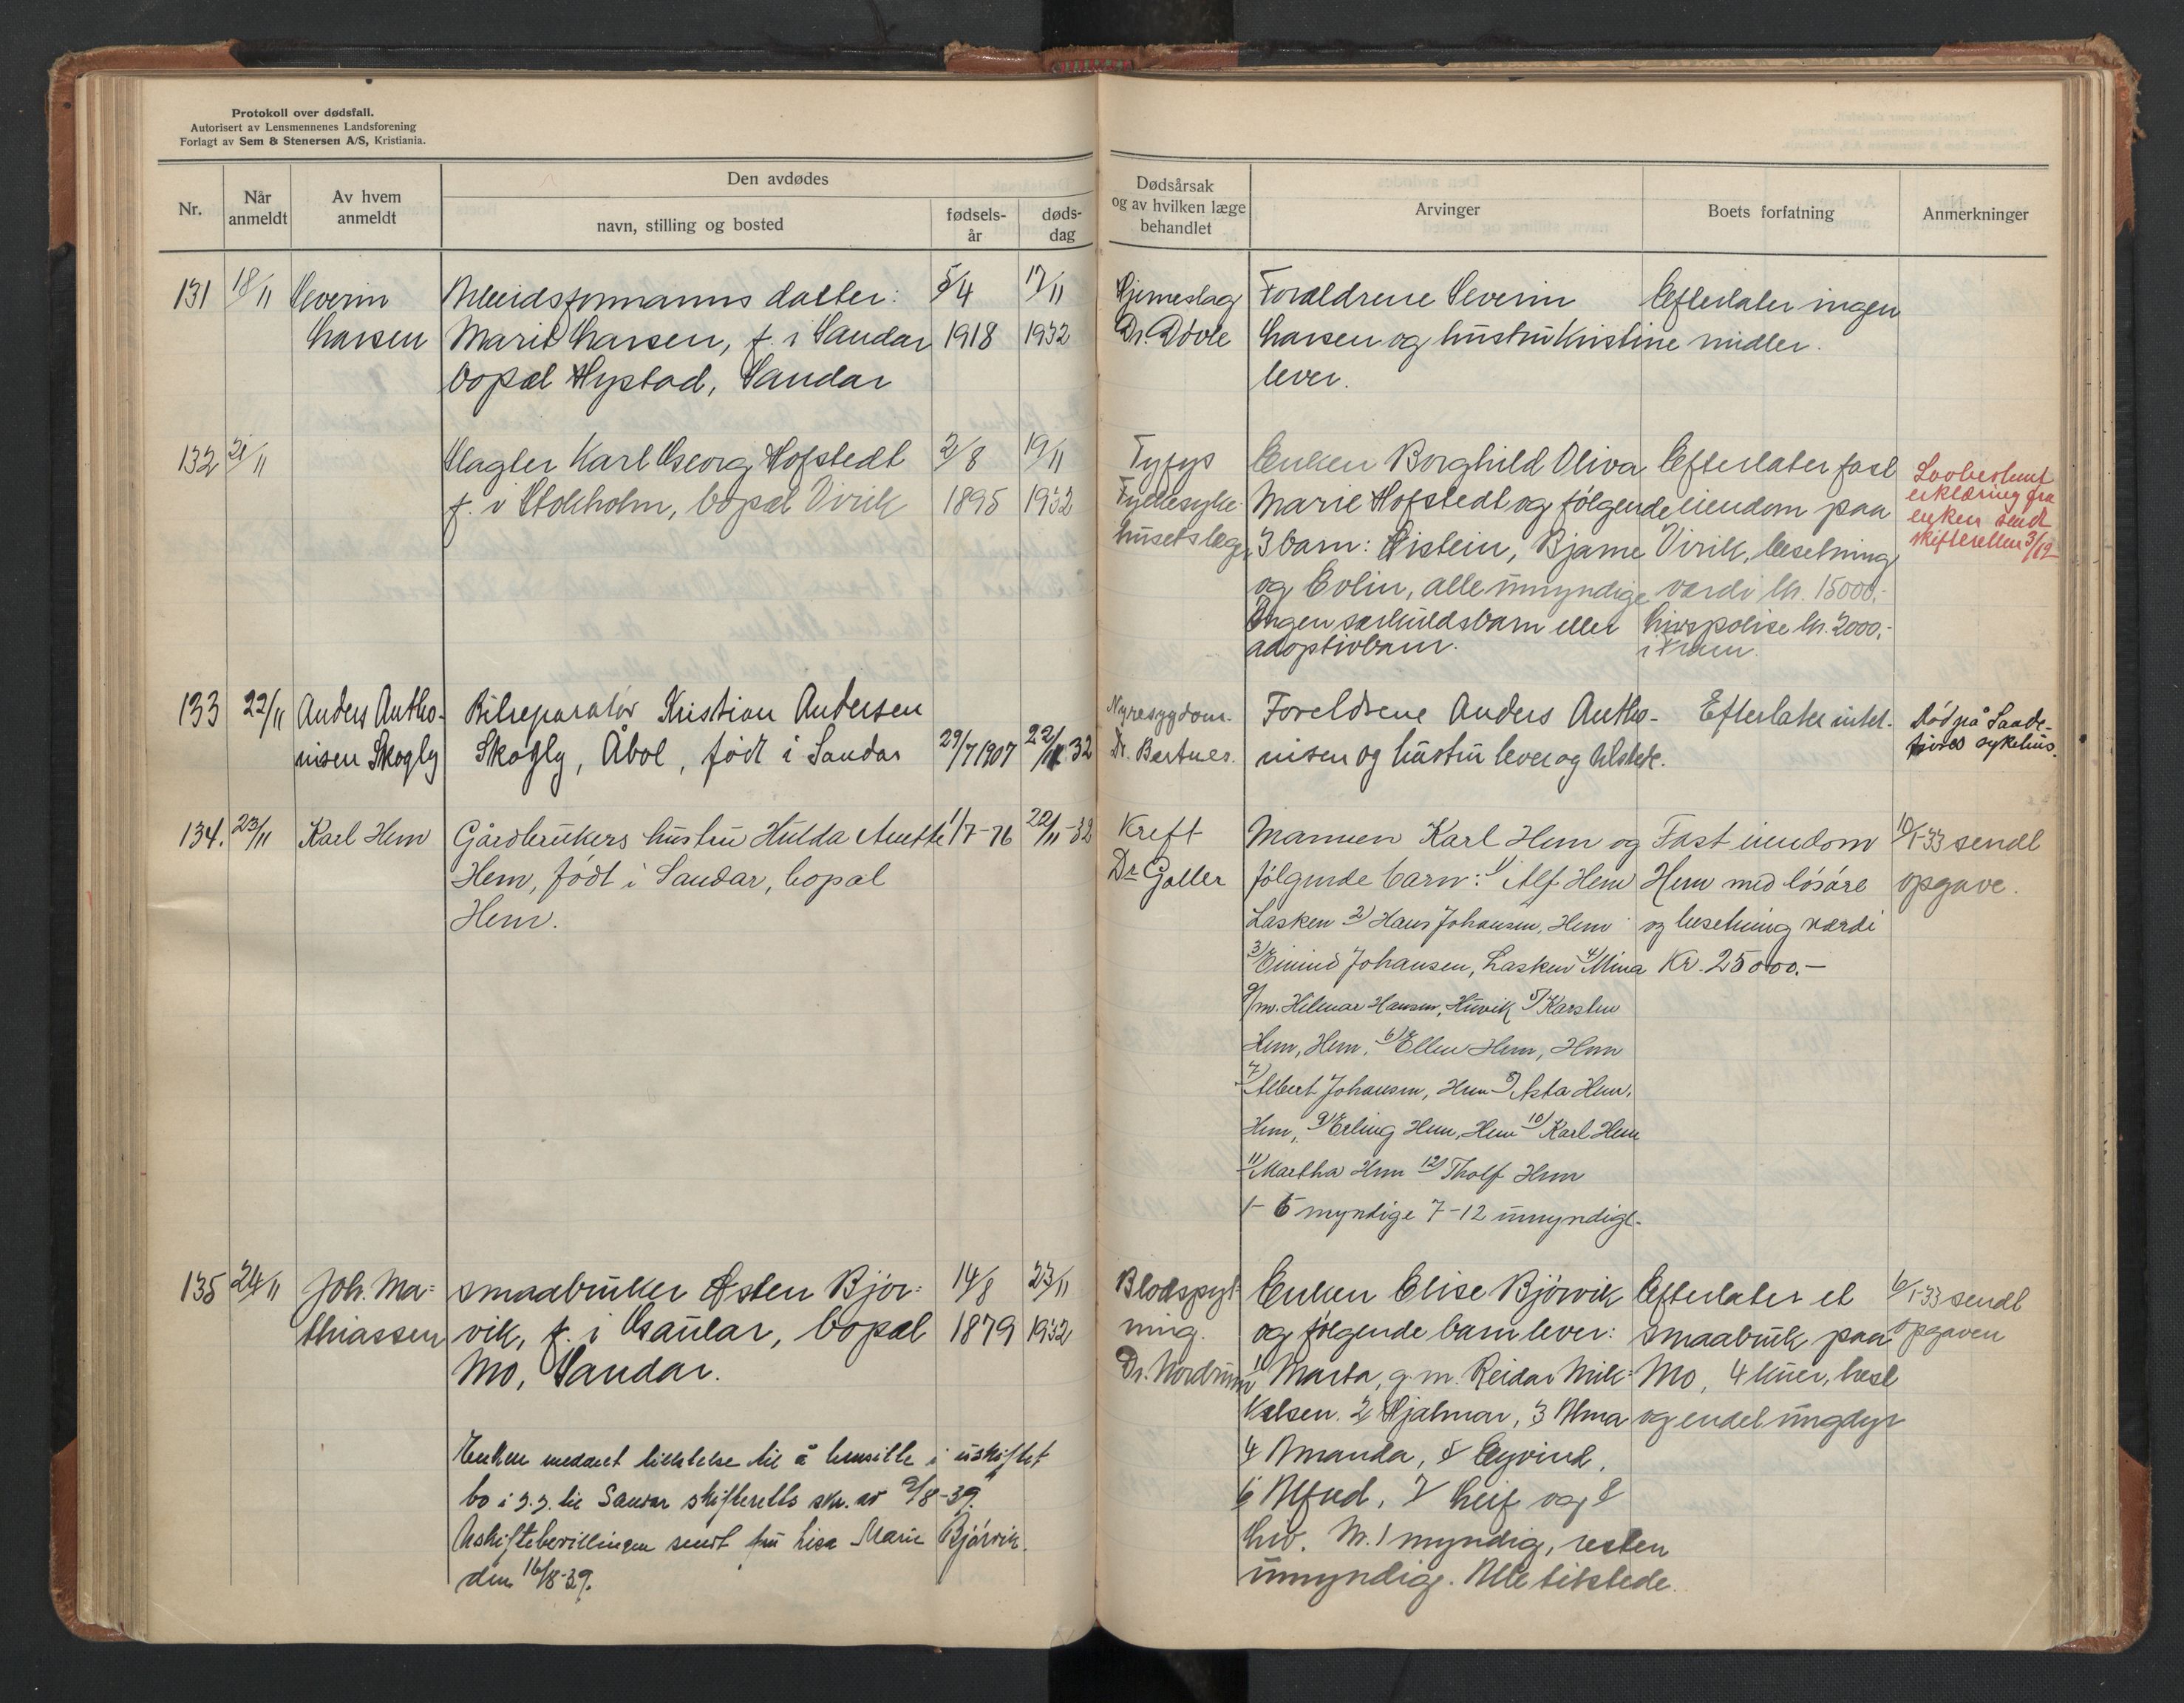 Protokoll over dødsfall.
Autorisert av Lensmennenes Landsforening
Forlagt av Sem & Stenersen A/S, Kristiania.
Nr.
Når anmeldt
Av hvem anmeldt
Den avdødes
navn, stilling og bosted
fødsels-år
døds-dag
Dødsårsak og av hvilken læge behandlet
Arvinger
Boets forfatning
Anmerkninger
131 18/11 Severin Arbeidsformanns datter: 5/4 17/11
Larsen Marit Larsen, f. i Sandar 1918 1932
bopæl Hystad, Sandar
Hjerneslag Forældrene Severin Efterlater ingen
Dr. Larsen og hustru Kristine midler.
lever.
132 21/11 Slagter Karl Georg Hofstedt 2/8 19/11
f. i Stokholm, bopæl Virik 1895 1932
Tyfys Enken Borghild Oliva Efterlater fast
Fylkesyke- Marie Hofstedt og følgende eiendom paa
husets læge 3 barn: Øistein, Bjarne Virik, besetning
og Evlin, alle umyndige værdi kr. 15000,-
Ingen særkuldsbarn eller Livspolise kr. 2000,-
adoptivbarn. i Fram.
Lovbestemt
erklæring fra
enken sendt
skifteretten 3/12
133 22/11 Anders Antho- Bilreparatør Kristian Andersen
nisen Skogly Skogly, Åbol, født i Sandar 29/7 1907 22/11 32
Nyresygdom. Foreldrene Anders Antho- Efterlater intet. Død på Sande-
Dr. Bertner. nisen og hustru lever og tilstede. fjord sykehus.
134. 23/11 Karl Hem Gårdbrukers hustru Hulda Anette 1/7-76 22/11-32
Hem, født i Sandar, bopæl
Hem.
Kreft Mannen Karl Hem og Fast eiendom 10/1-33 sendt
Dr Goller følgende barn: 1) Alf Hem Hem med løsøre opgave.
Lasken 2) Hans Johansen, Hem og besetning værdi
3) Eivind Johansen, Lasken 4) Mina Kr. 25000.-
g/m. Hilmar Hansen, Huvik 5) Karsten
Hem, Hem. 6) Ellen Hem, Hem
7) Albert Johansen, Hem 8) Asta Hem,
Hem, 9) Erling Hem, Hem 10) Karl Hem
11) Martha Hem 12) Tholf Hem
1-6 myndige 7-12 umyndige.
135 24/11 Joh. Ma= smaabruker Østen Bjør= 14/8 23/11
thiassen vik, f. i Gaular, bopæl 1879 1932
Mo, Sandar.
Blodspyt- Enken Elise Bjørvik Efterlater et 6/1-33 sendt
ning. og følgende barn lever: smaabruk paa opgaven
Dr. Nordrum 1 Marta, g.m. Reidar Mik= Mo, 4 kuer, hest
kelsen. 2 Hjalmar, 3 Alma og endel ungdyr
4 Amanda, 5 Eyvind,
6 Alfred, 7 Leif og 8
Liv. Nr. 1 myndig, resten
umyndige. Alle tilstede.
Enken meddelt tillatelse til å hensitte i uskiftet
bo i h.h. til Sandar skifteretts skr. av 9/8-39.
Uskiftebevillingen sendt fru Lisa Marie Bjørvik.
den 16/8-39.